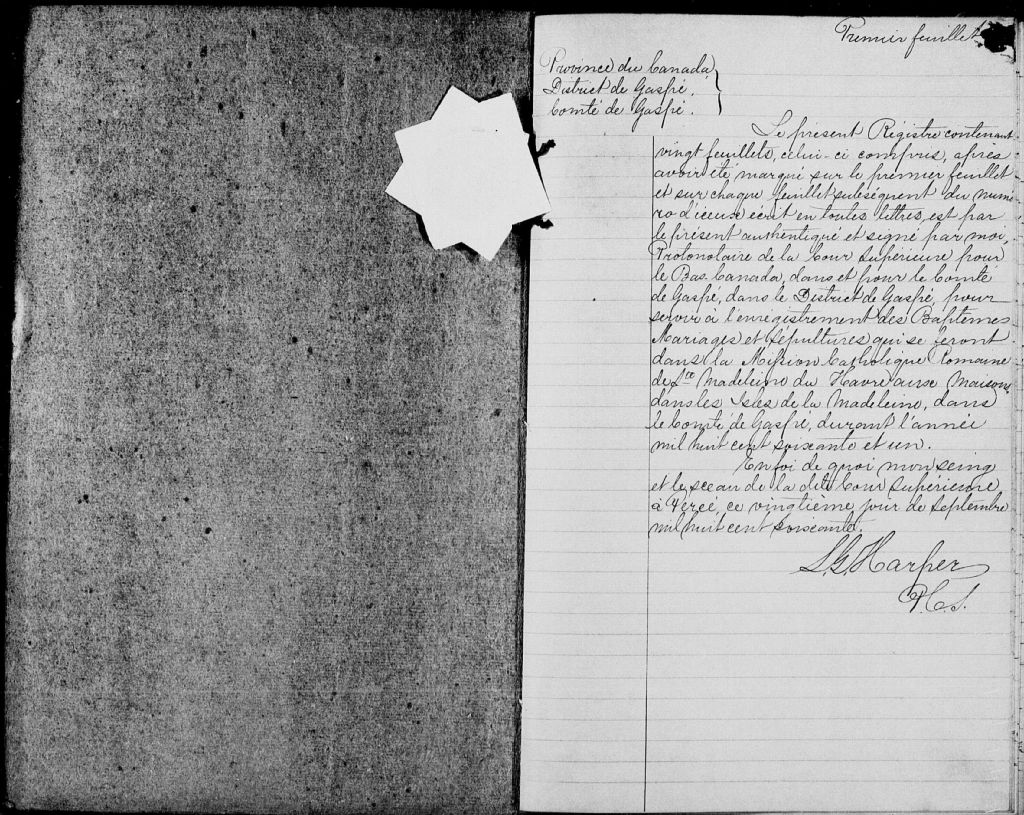 Premier feuillet
Province du Canada,
District de Gaspé.
Comté de Gaspé.
Le présent Régistre contenant
vingt feuillets, celui-ci compris, après
avoir été marqué sur le premier feuillet
et sur chaque feuillet subséquent du numé
ro d'iceux écrit en toutes lettres, est par
le présent authentiqué et signé par moi,
Protonotaire de la Cour Supérieure pour
le Bas Canada, dans et pour le Comté
de Gaspé, dans le District de Gaspé, pour
servir à l'enrégistrement des Baptêmes
Mariages et Sépultures qui se feront
dans la Mission Catholique Romaine
de Ste Madeleine du Havre aux Maisons
dans les Isles de la Madeleine, dans
le Comté de Gaspé, durant l'année
mil huit cent soixante et un.
En foi de quoi mon seing
et le sceau de la dite Cour Supérieure
à Percé, ce vingtième jour de Septembre
mil huit cent soixante.
L.G. Harper
P.C.S.